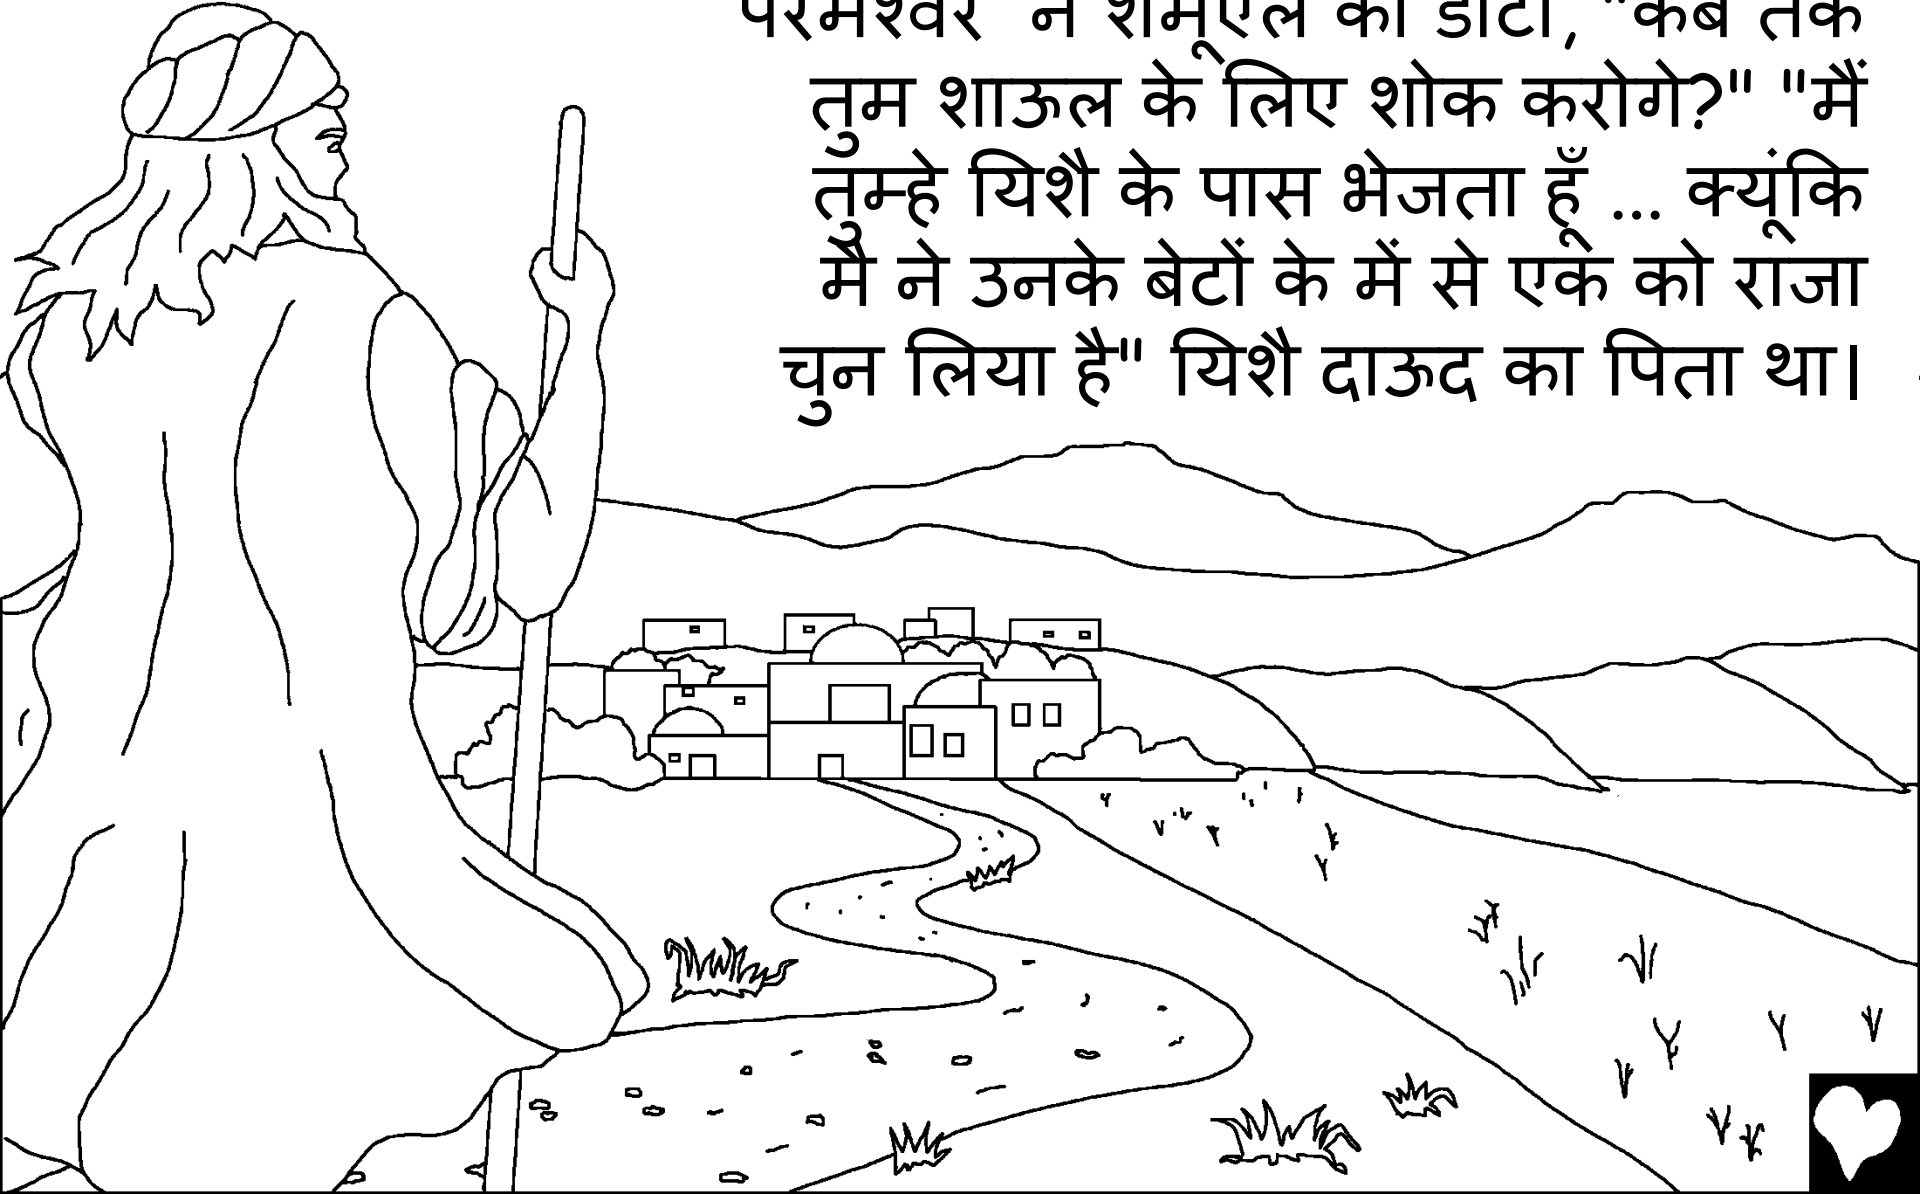 परमेश्वर ने शमूएल को डांटा, "कब तक
तुम शाऊल के लिए शोक करोगे?" "मैं
तुम्हे यिशै के पास भेजता हूँ ... क्यूंकि
मै ने उनके बेटों के में से एक को राजा
चुन लिया है" यिशै दाऊद का पिता था।